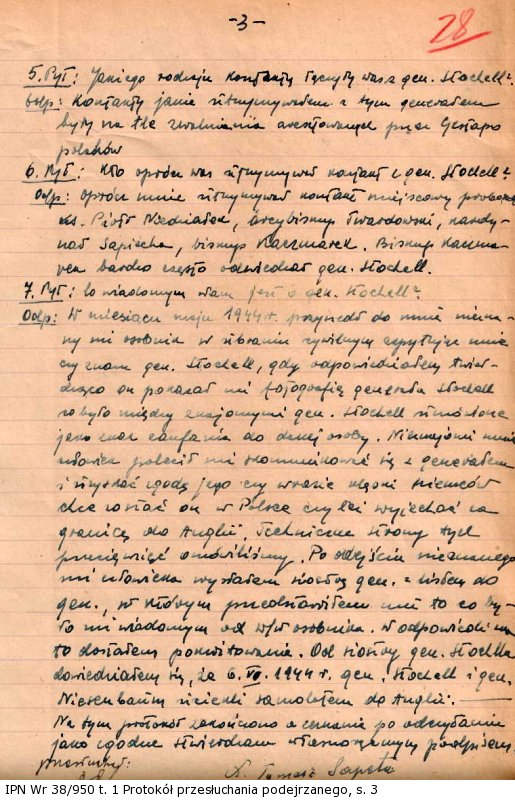 -3-
28
5. Pyt: Jakiego rodzaju kontakty łączyły was z gen. Stochell?
Odp: Kontakty jakie utrzymywałem z tym generałem
były na tle zwalniania aresztowanych przez Gestapo
polaków
6. Pyt: Kto oprócz was utrzymywał kontakt z gen. Stochell?
Odp: oprócz mnie utrzymywał kontakt miejscowy proboszcz
ks. Piotr Niedziałek, arcybiskup Twardowski, kardy-
nał Sapiecha, biskup Kaczmarek. Biskup Kaczma-
rek bardzo często odwiedzał gen. Stochell.
7. Pyt: Co wiadomym wam jest o gen. Stochell?
Odp: W miesiącu maju 1944 r. przyszedł do mnie niezna-
ny mi osobnik w ubraniu cywilnym zapytując mnie
czy znam gen. Stochell, gdy odpowiedziałem twier-
dząco on pokazał mi fotografię generała Stochell
co było między znajomymi gen. Stochell umówione
jako znak zaufania do danej osoby. Nieznajomi mnie
człowiek polecił mi skomunikować się z generałem
i uzyskać zgodę jego czy wrazie klęski niemców
chce zostać on w Polsce czy też wyjechać za
granicę do Anglii. Techniczne strony tych
przedsięwzięć omówiliśmy. Po odejściu nieznanego
mi człowieka wysłałem siostrę gen. z listem do
gen., w którym przedstawiłem mu to co by-
ło mi wiadomym od w/w osobnika. W odpowiedzi na
to dostałem pokwitowanie. Od siostry gen. Stochla
dowiedziałem się, że 6. VII. 1944 r. gen. Stochell i gen.
Niesenbaum uciekli samolotem do Anglii.
Na tym protokół zakończono a zeznanie po odczytaniu
jako zgodne stwierdzam własnoręcznym podpisem.
przesłuchał:
Tomasz Sapeta
IPN Wr 38/950 t. 1 Protokół przesłuchania podejrzanego, s. 3